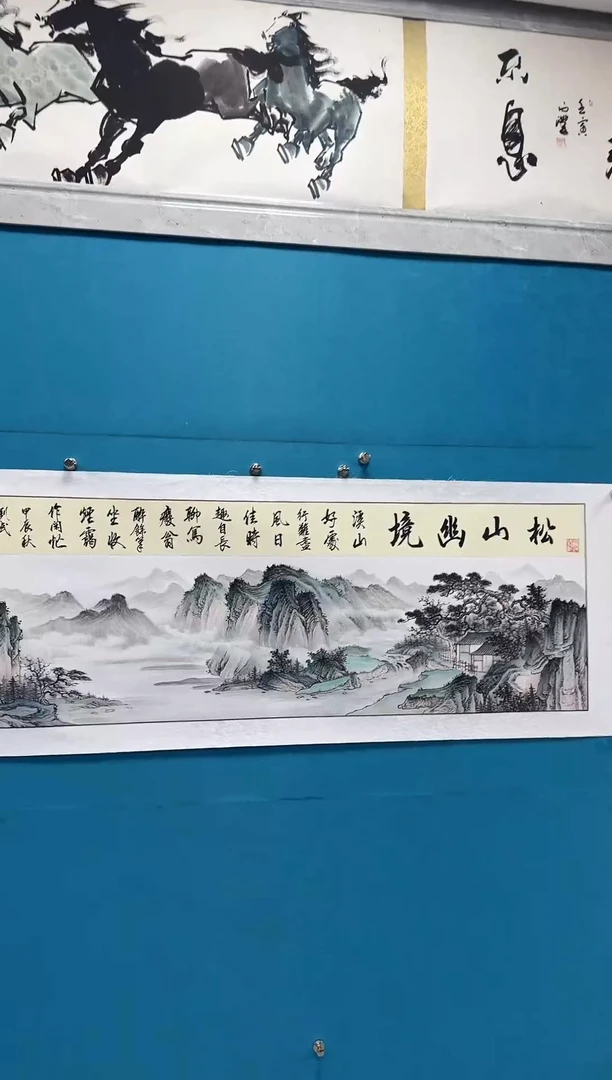 壬寅
不息
松山幽境
溪山
好處
行難盡
風日
佳時
趣自長
聊寫
癡翁
醉餘筆
坐收
煙靄
作閑忙
甲辰秋